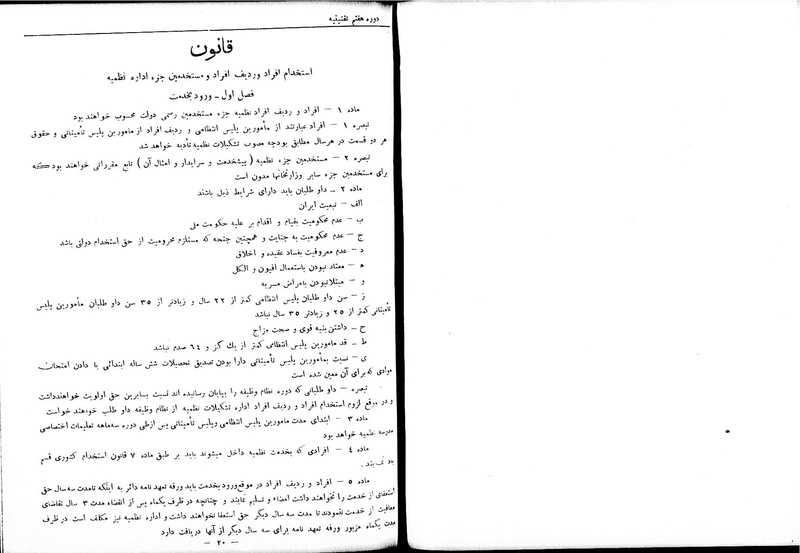 دوره هفتم تقنینیه
قانون
استخدام افراد وردیف افراد و مستخدمین جزء اداره نظمیه
فصل اول ـ ورود بخدمت
ماده ۱ – افراد و ردیف افراد نظمیه جزء مستخدمین رسمی دولت محسوب خواهند بود
تبصره ۱ – افراد عبارتند از مأمورین پلیس انتظامی و ردیف افراد از مامورین پلیس تأمیناتی و حقوق
هر دو قسمت در هرسال مطابق بودجه مصوب تشکیلات نظمیه تأدیه خواهد شد
تبصره ۲ – مستخدمین جزء نظمیه ( پیشخدمت و سرایدار و امثال آن ) تابع مقرراتی خواهند بود که
برای مستخدمین جزء سایر وزارتخانها مدون است
ماده ۲ ـ داو طلبان باید دارای شرایط ذیل باشند
الف – تبعیت ایران
ب – عدم محکومیت بقیام و اقدام بر علیه حکومت ملی
ج – عدم محکومیت به جنایت و همچنین جنحه که مستلزم محرومیت از حق استخدام دولتی باشد
د – عدم معروفیت بفساد عقیده و اخلاق
ه – معتاد نبودن باستعمال افیون و الکل
و – مبتلانبودن بامراض مسریه
ز – سن داو طلبان پلیس انتظامی کمتر از ۲۲ سال و زیادتر از ۳۵ سن داو طلبان مأمورین پلیس
تأمیناتی کمتر از ۲۵ و زیادتر ۳۵ سال نباشد
ح – داشتن بنیه قوی و صحت مزاج
ط – قد مامورین پلیس انتظامی کمتر از یك گز و ٦٤ صدم نباشد
ی – نسبت بمأمورین پلیس تأمیناتی دارا بودن تصدیق تحصیلات شش ساله ابتدائی یا دادن امتحان
موادی که برای آن معین شده است
تبصره – داو طلبانی که دوره نظام وظیفه را بپایان رسانیده اند نسبت بسایرین حق اولویت خواهندداشت
و در موقع لزوم استخدام افراد و ردیف افراد اداره تشکیلات نظمیه از نظام وظیفه داو طلب خواهند خواست
ماده ۳ – ابتدای مدت مامورین پلیس انتظامی وپلیس تأمیناتی پس ازطی دوره سهماهه تعلیمات اختصاصی
مدرسه نظمیه خواهد بود
ماده ٤ – افرادی که بخدمت نظمیه داخل میشوند باید بر طبق ماده ۷ قانون استخدام کشوری قسم
یاد نمایند .
ماده ٥ – افراد و ردیف افراد در موقع‌ورود بخدمت باید ورقه تعهد نامه دائر به اینکه تامدت سه سال حق
استعفای از خدمت را نخواهند داشت امضاء و تسلیم نمایند و چنانچه در ظرف یکماه پس از انقضاء مدت ۳ سال تقاضای
معافیت از خدمت ننمودند تا مدت سه سال دیگر حق استعفا نخواهند داشت و اداره نظمیه نیز مکلف است در ظرف
مدت یکماه مزبور ورقه تعهد نامه برای سه سال دیگر از آنها دریافت دارد
– ۲۰ –